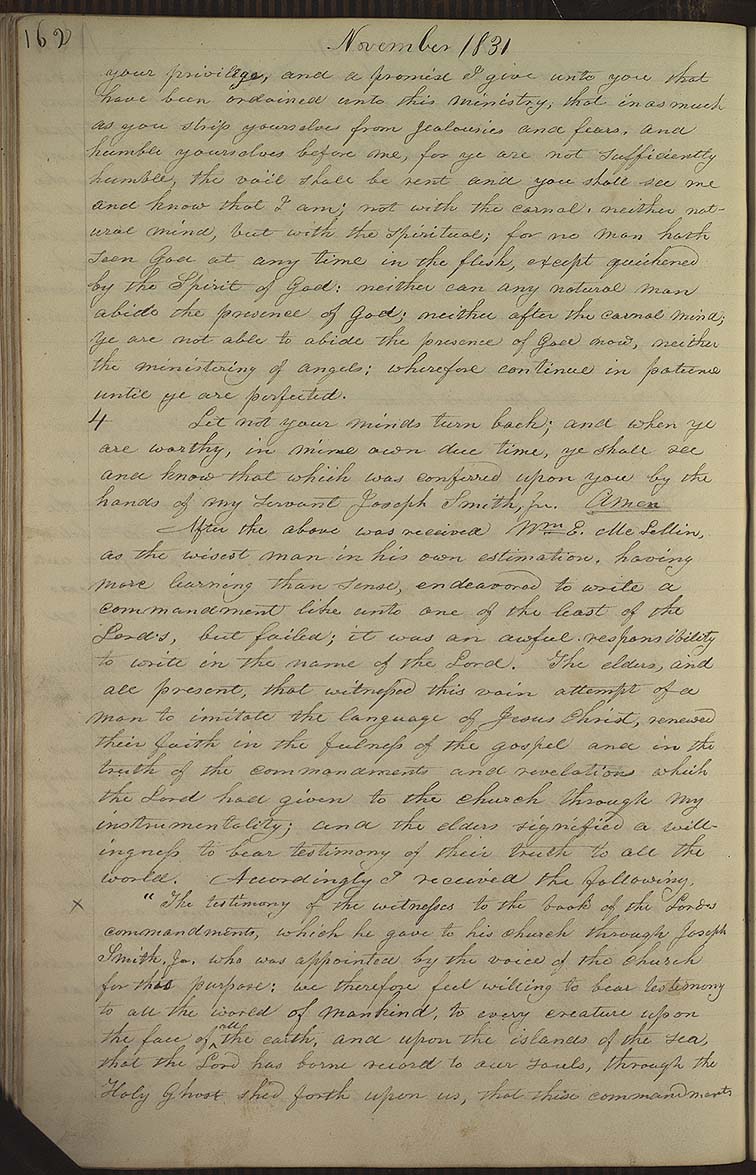 162
November 1831
your privilege, and a promise I give unto you that
have been ordained unto this ministry, that in as much
as you strip yourselves from jealousies and fears, and
humble yourselves before me, for ye are not sufficiently
humble, the vail shall be rent and you shall see me
and know that I am; not with the carnal, neither nat-
ural mind, but with the spiritual; for no man hath
seen God at any time in the flesh, except quickened
by the Spirit of God: neither can any natural man
abide the presence of God; neither after the carnal mind;
ye are not able to abide the presence of God now, neither
the ministering of angels; wherefore continue in patience
until ye are perfected.
4 Let not your minds turn back; and when ye
are worthy, in mine own due time, ye shall see
and know that which was conferred upon you by the
hands of my servant Joseph Smith, Jr. Amen
After the above was received Wm E. McLellin,
as the wisest man in his own estimation, having
more learning than sense, endeavored to write a
commandment like unto one of the least of the
Lord's, but failed; it was an awful responsibility
to write in the name of the Lord. The elders, and
all present, that witnessed this vain attempt of a
man to imitate the language of Jesus Christ, renewed
their faith in the fulness of the gospel and in the
truth of the commandments and revelations which
the Lord had given to the church through my
instrumentality; and the elders signified a will-
ingness to bear testimony of their truth to all the
world. Accordingly I received the following,
x "The testimony of the witnesses to the book of the Lord's
commandments, which he gave to his church through Joseph
Smith, Jr. who was appointed by the voice of the church
for this purpose: we therefore feel willing to bear testimony
to all the world of mankind, to every creature upon
the face of all the earth, and upon the islands of the sea,
that the Lord has borne record to our souls, through the
Holy Ghost shed forth upon us, that these commandments